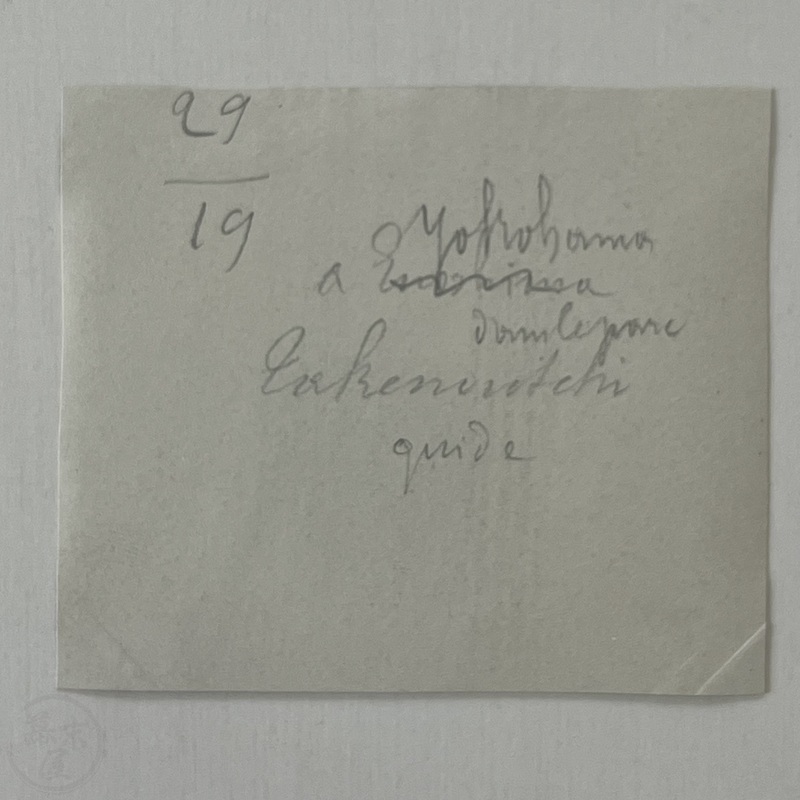 29
19
Yokohama
a
dans le parc
Takenoutchi
guide